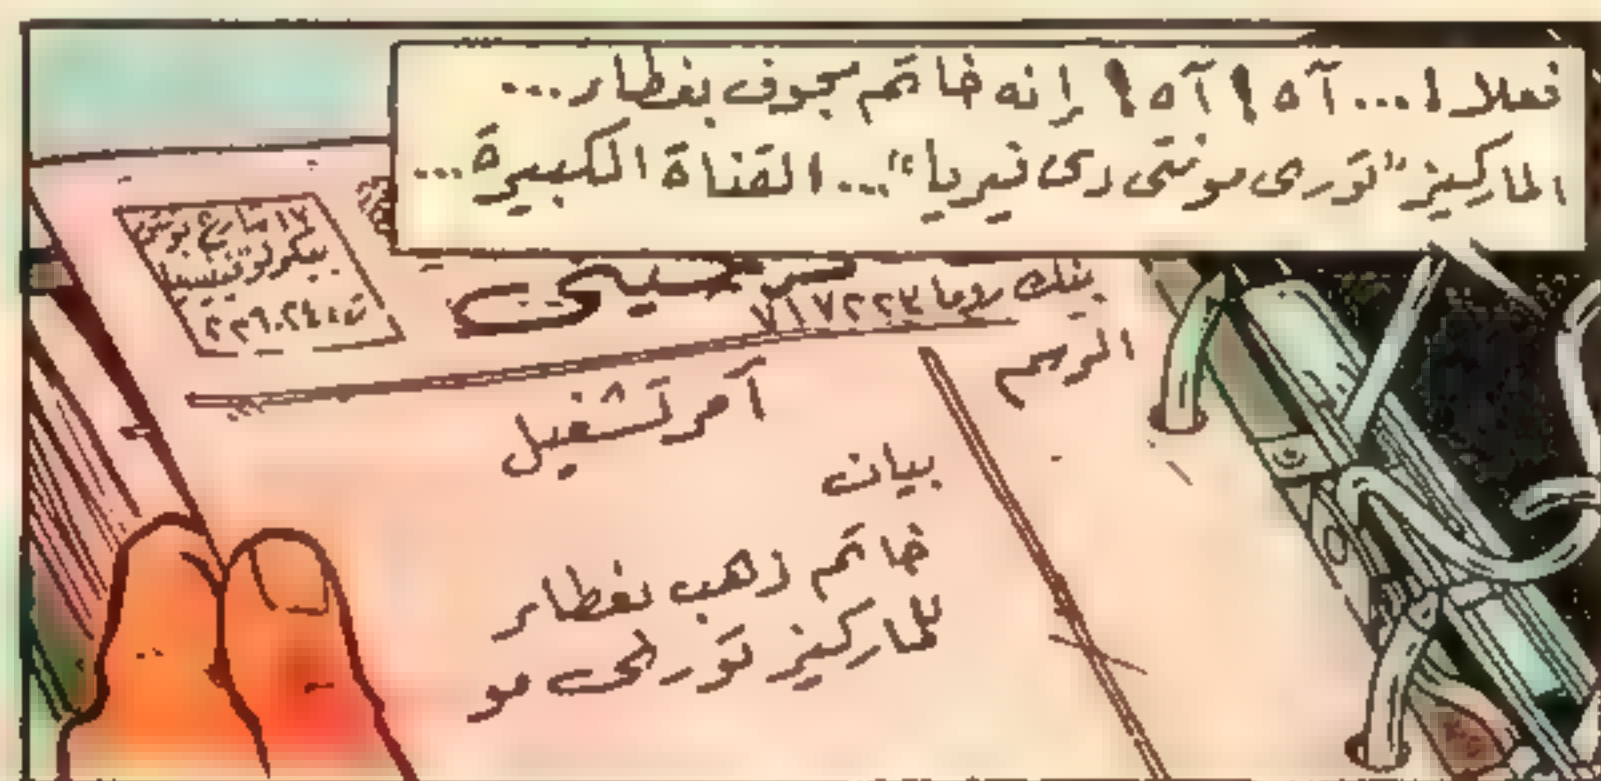 فعلا !... آه ! آه ! إنه خاتم مجوف بغطاء...
الماركيز "توري مونتى دى نيريا"... القناة الكبيرة...
١٧ شارع
بنك روما ٧١٧٢٢٣
الرسم
أمر تشغيل
بيان
خاتم ذهب بغطاء
للماركيز تورى مو